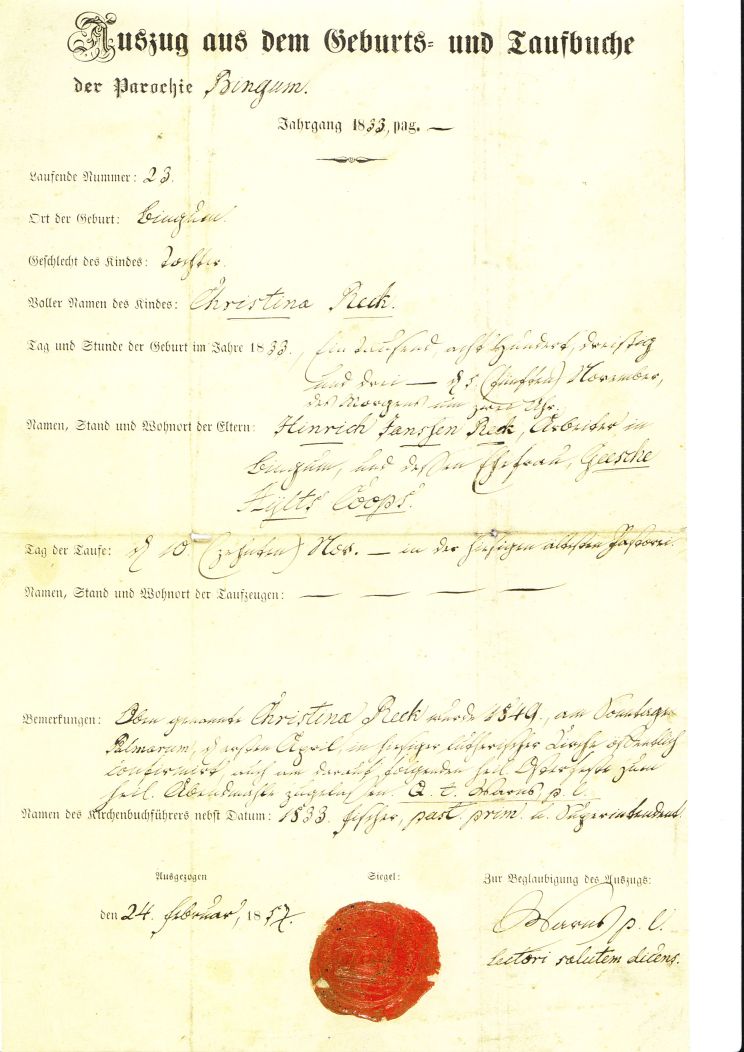 Auszug aus dem Geburts- und Taufbuche
der Parochie Bingum.
Jahrgang 1833, pag. —
Laufende Nummer: 23.
Ort der Geburt: Bingum.
Geschlecht des Kindes: Tochter.
Voller Namen des Kindes: Christina Reck.
Tag und Stunde der Geburt im Jahre 1833., Ein tausend, acht Hundert, dreißig
und drei — d 5. (fünften) November,
des Morgens um zwei Uhr.
Namen, Stand und Wohnort der Eltern: Hinrich Janssen Reck, Arbeiter in
Bingum, und dessen Ehefrau, Geesche
Hylts Coops.
Tag der Taufe: d 10. (zehnten) Nov. — in der hiesigen ältesten Pastorei.
Namen, Stand und Wohnort der Taufzeugen: — — — —
Bemerkungen: Oben genannte Christina Reck wurde 1849., am Sonntage
Palmarum, d ersten April, in hiesiger lutherischer Kirche öffentlich
confirmirt, auch am darauf folgenden heil. Osterfeste zum
heil. Abendmahle zugelassen. Q. t. Warns p. l.
Namen des Kirchenbuchführers nebst Datum: 1833. Fischer, past. prim. u. Superintendent.
Ausgezogen
Siegel:
Zur Beglaubigung des Auszugs:
den 24. Februar, 1857.
Warns p. l.
lectori salutem dicens.